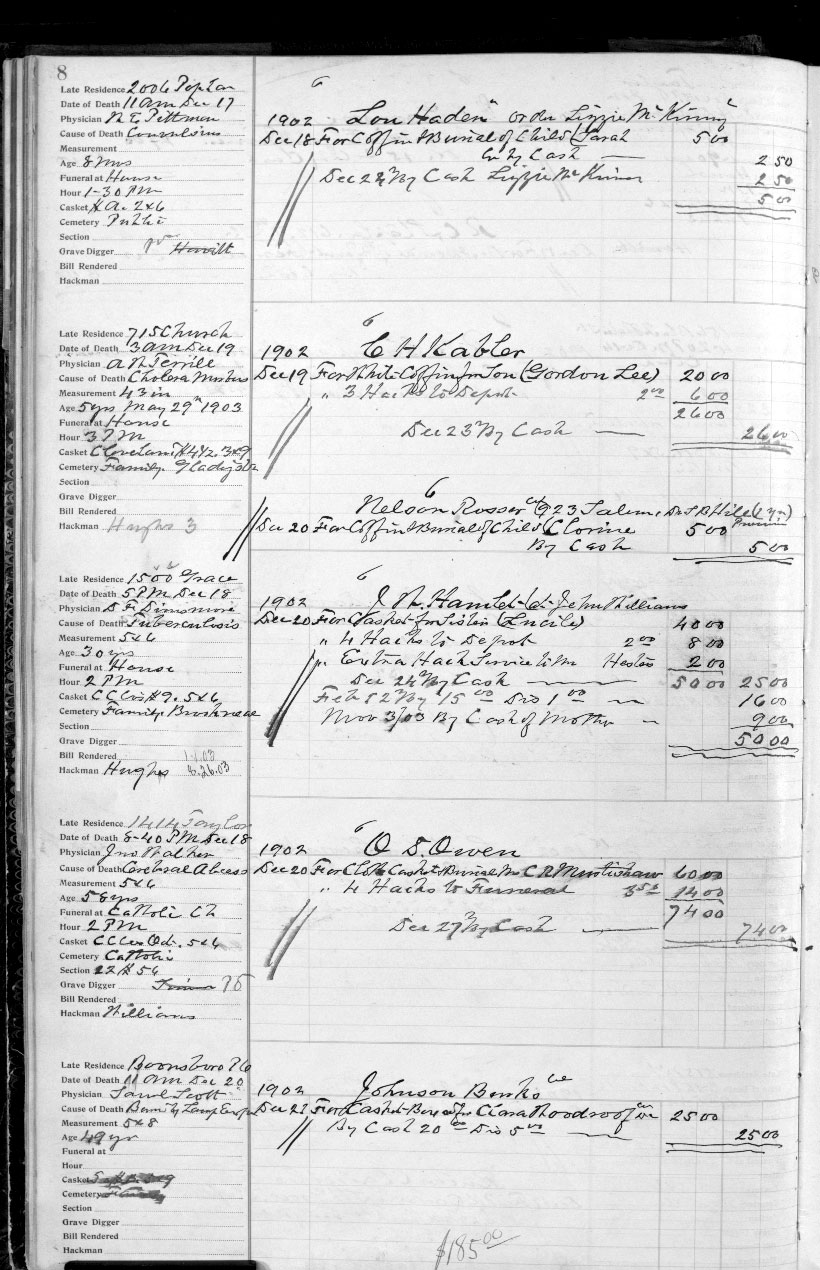 8
Late Residence 2006 Poplar
Date of Death 11 am Dec 17
Physician N E Pittman
Cause of Death
Measurement
Age 8 mos
Funeral at House
Hour 1-30 PM
Casket 2x6
Cemetery Public
Section
Grave Digger Hewitt
Bill Rendered
Hackman
1902 Lou Haden order Lizzie McKinny
Dec 18 For Coffin & Burial of Child (Sarah 5 00
By Cash 2 50
Dec 22 By Cash Lizzie McKinney 2 50
5 00
Late Residence 715 Church
Date of Death 3 am Dec 19
Physician A N Terrill
Cause of Death Cholera Morbus
Measurement 43 in
Age 5 yrs May 29th 1903
Funeral at House
Hour 3 PM
Casket
Cemetery Family Gladys Va
Section
Grave Digger
Bill Rendered
Hackman Hughs 3
1902 C H Kabler
Dec 19 For White Coffin for Son (Gordon Lee) 20 00
" 3 Hacks to Depot 2 00 6 00
26 00
Dec 23 By Cash 26 00
Nelson Rosser col 923 Salem, Dr Hill (2 yr)
Dec 20 For Coffin & Burial of Child (Clorine 5 00
By Cash 5 00
Late Residence 1500 Grace
Date of Death 5 PM Dec 18
Physician D F Dinsmore
Cause of Death Tuberculosis
Measurement 5x6
Age 30 yrs
Funeral at House
Hour 2 PM
Casket 5x6
Cemetery Family Brookneal
Section
Grave Digger
Bill Rendered 1-1.03
Hackman Hughs 8.26.03
1902 J N Hamlet at John Williams
Dec 20 For Casket for Sister (Lucile) 40 00
" 4 Hacks to Depot 2 00 8 00
" Extra Hack Service 2 00
Dec 24 By Cash 50 00 25 00
Feb 12 By 15 00 Dis 1 00 16 00
Nov 3/03 By Cash of Mother 9 00
50 00
Late Residence 1414 Taylor
Date of Death 8-40 PM Dec 18
Physician Jno Walker
Cause of Death Cerebral Abcess
Measurement 5x6
Age 58 yrs
Funeral at Catholic Ch
Hour 2 PM
Casket 5x6
Cemetery Catholic
Section 22 54
Grave Digger
Bill Rendered
Hackman Williams
1902 O S. Owen
Dec 20 For Cloth Casket & Burial Mrs C R 60 00
" 4 Hacks to Funeral 3 50 14 00
74 00
Dec 27 By Cash 74 00
Late Residence Boonsboro Pk
Date of Death 11 am Dec 20
Physician Saml Scott
Cause of Death Burn by Lamp
Measurement 5x8
Age 49 yr
Funeral at
Hour
Casket
Cemetery
Section
Grave Digger
Bill Rendered
Hackman
1902 Johnson Banks
Dec 21 For Casket Box for Clara Woodroof 25 00
By Cash 20 00 Dis 5 00 25 00
$185 00